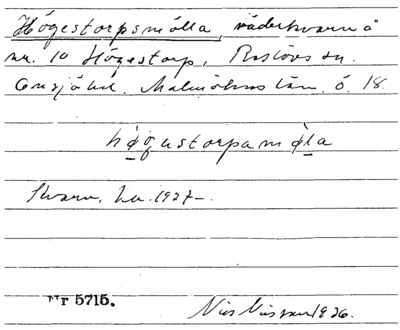 Högestorpsmölla, väderkvarn å
nr. 10 Högestorp, Röstövs sn.
Onsjö hd. Malmöhus län. ö. 18.
högustorpamọ̈la
Kvarn, Lu. 1927–.
Nr 5715.
Nils Nilsson 1926.